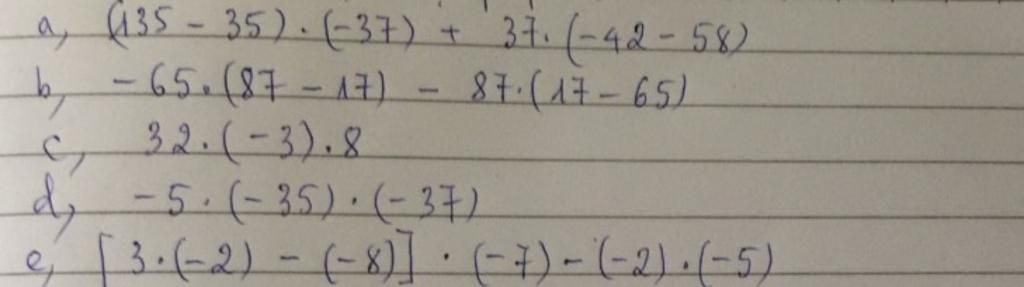 a, (135 - 35) . (-37) + 37. (-42 - 58)
b, -65. (87 - 17) - 87. (17 - 65)
c, 32. (-3) . 8
d, -5 . (-35) . (-37)
e, [3. (-2) - (-8)] . (-7) - (-2) . (-5)